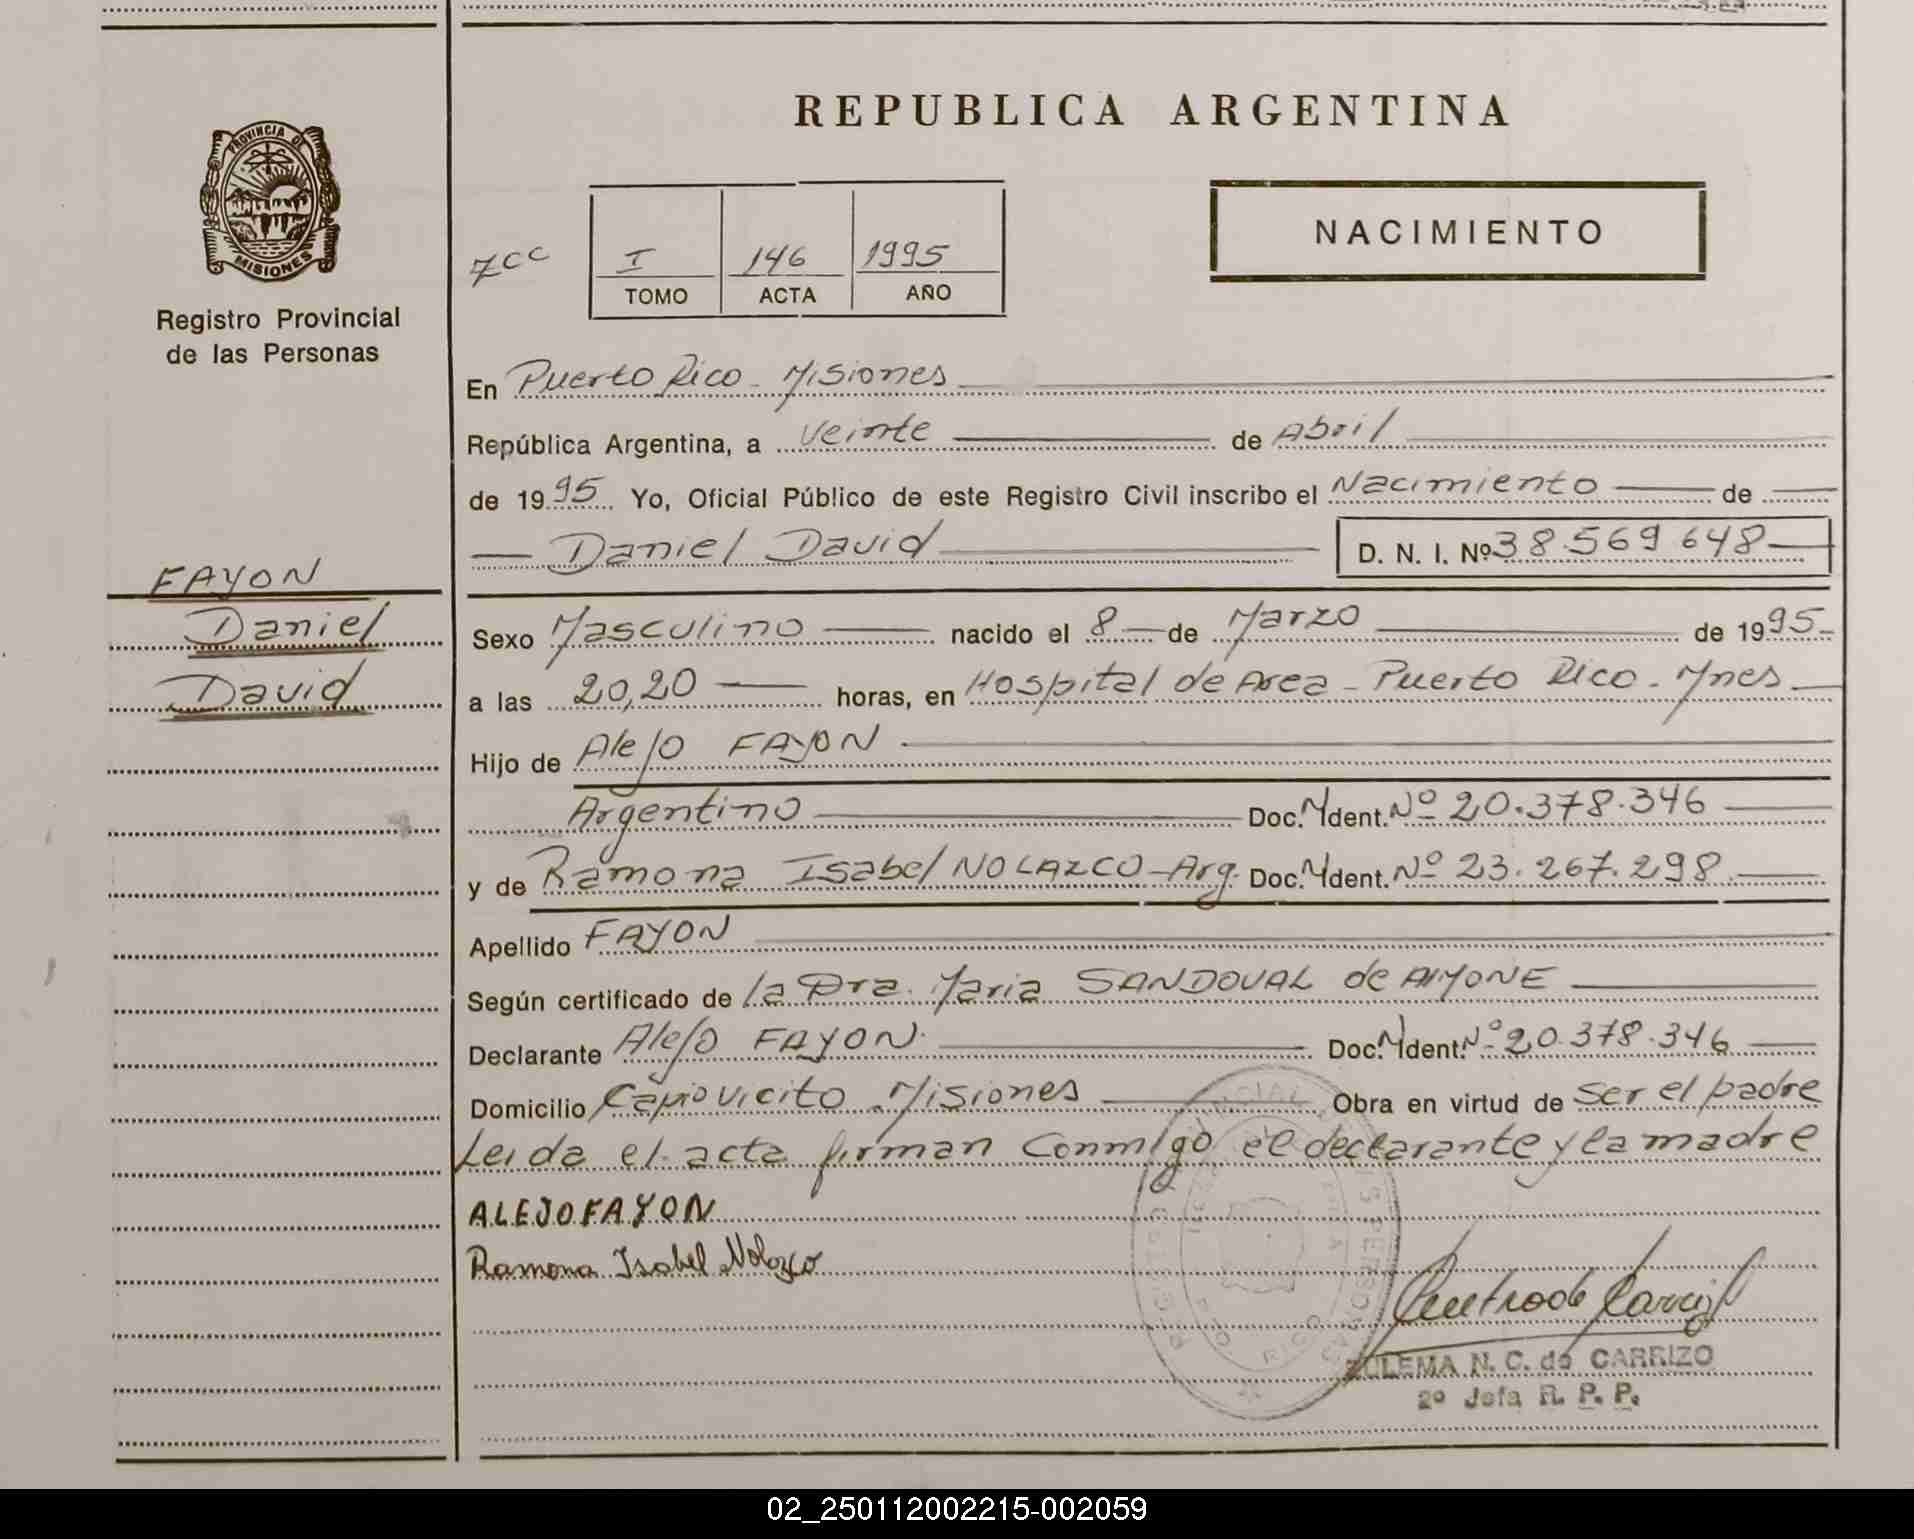 REPUBLICA ARGENTINA
PROVINCIA DE
MISIONES
Registro Provincial
de las Personas
NACIMIENTO
I 146 1995
TOMO ACTA AÑO
En Puerto Rico - Misiones
República Argentina, a Veinte de Abril
de 1995 Yo, Oficial Público de este Registro Civil inscribo el Nacimiento de
Daniel David D. N. I. Nº 38.569.648
FAYON
Daniel
David
Sexo Masculino nacido el 8 de Marzo de 1995
a las 20,20 horas, en Hospital de Area - Puerto Rico - Mnes
Hijo de Alejo FAYON
Argentino Doc. Ident. Nº 20.378.346
y de Ramona Isabel NOLAZCO - Arg. Doc. Ident. Nº 23.267.298
Apellido FAYON
Según certificado de la Dra. Maria SANDOVAL de AIMONE
Declarante Alejo FAYON Doc. Ident. Nº 20.378.346
Domicilio Capiovicito Misiones Obra en virtud de ser el padre
Leida el acta firman conmigo el declarante y la madre
ALEJO FAYON
Ramona Isabel Nolazco
ZULEMA N. C. de CARRIZO
2º Jefa R. P. P.
02_250112002215-002059